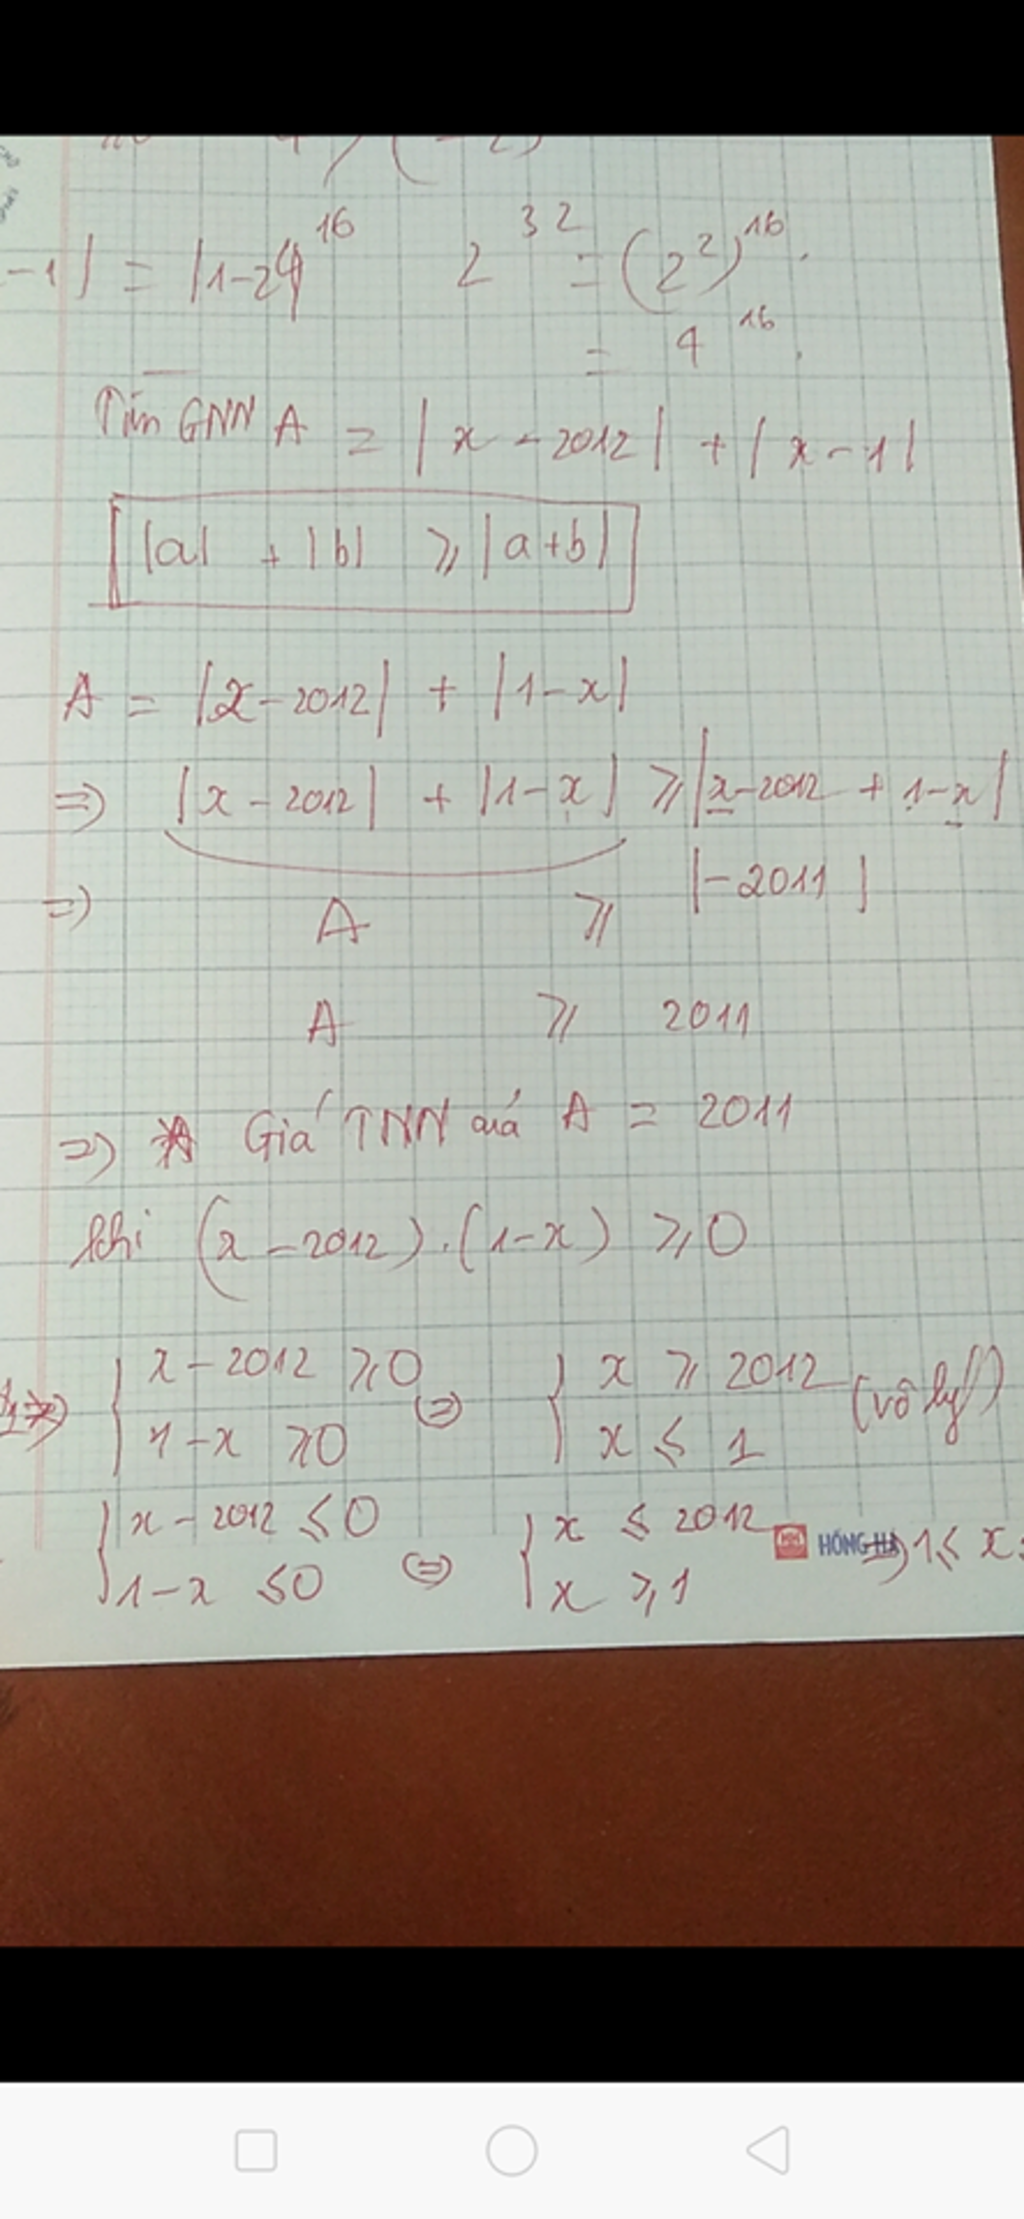 -1| = |1-24|^16 2^32 = (2^2)^16.
= 4^16.
Tìm GNN A = |x - 2012| + |x - 1|
|a| + |b| ⩾ |a+b|
A = |x - 2012| + |1 - x|
=> |x - 2012| + |1 - x| ⩾ |x - 2012 + 1 - x|
|-2011|
=> A ⩾
A ⩾ 2011
=> Giá TNN của A = 2011
khi (x - 2012).(1 - x) ⩾ 0
{ x - 2012 ⩾ 0 <=> { x ⩾ 2012 (vô lý)
1 - x ⩾ 0 x ⩽ 1
{ x - 2012 ⩽ 0 <=> { x ⩽ 2012 HỒNG HÀ => 1 ⩽ x
1 - x ⩽ 0 x ⩾ 1